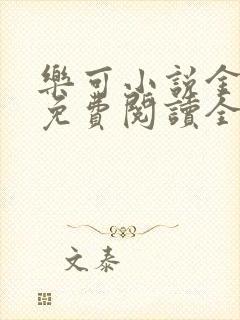 樂可小說全
免費閱讀全
文泰